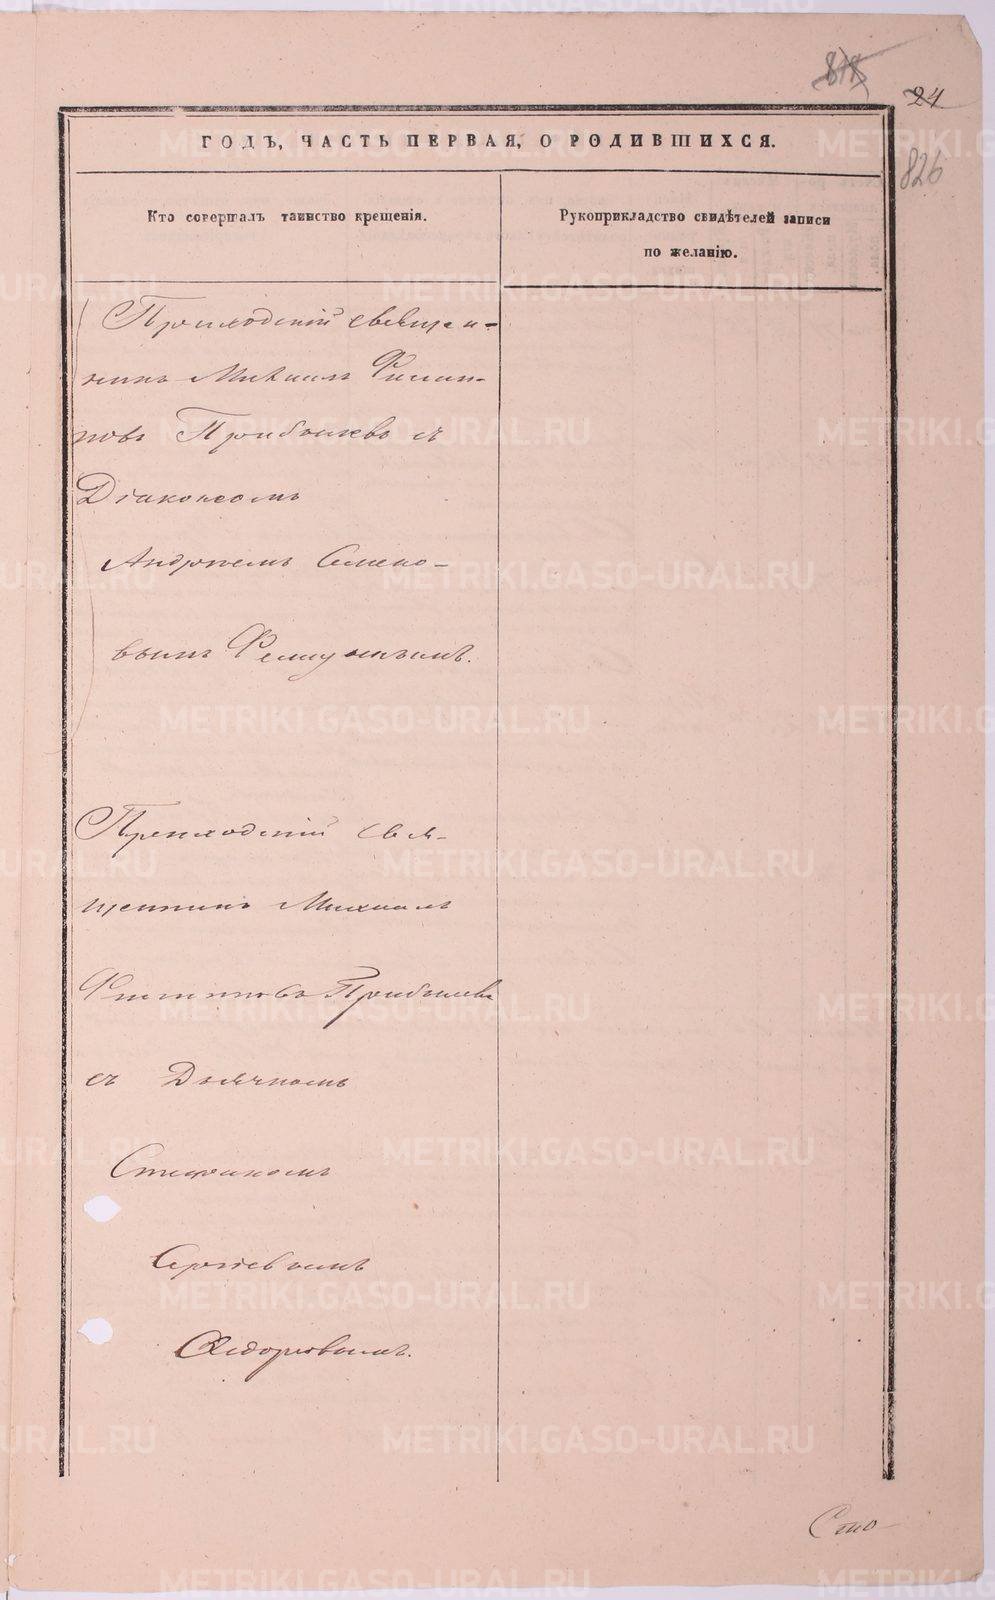 818
24
826
ГОДЪ, ЧАСТЬ ПЕРВАЯ, О РОДИВШИХСЯ.
Кто совершалъ таинство крещенія.
Рукоприкладство свидѣтелей записи
по желанію.
Приходскій священ-
никъ Михаилъ Филип-
повъ Прибылевъ съ
Діакономъ
Андреемъ Семено-
вымъ
Приходскій свя-
щенникъ Михаилъ
Филипповъ Прибылевъ
съ Дьячкомъ
Стефаномъ
Сергіевымъ
Сидоровымъ.
Сто
METRIKI.GASO-URAL.RU